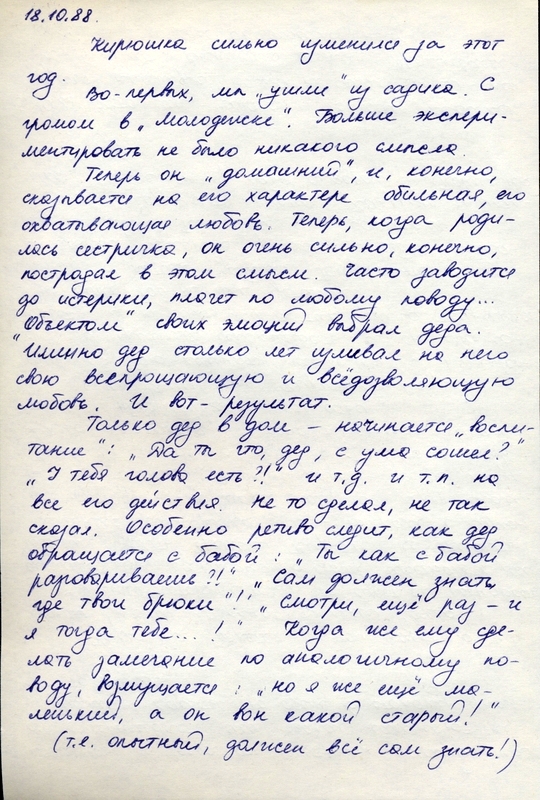 18.10.88.
Кирюшка сильно изменился за этот
год.
Во-первых, мы „ушли" из садика. С
громом в „Молодечске". Больше экспери-
ментировать не было никакого смысла.
Теперь он „домашний", и, конечно,
сказывается на его характере обильная, его
охватывающая любовь. Теперь, когда роди-
лась сестричка, он очень сильно, конечно,
пострадал в этом смысле. Часто заводится
до истерики, плачет по любому поводу...
"Объектом" своих эмоций выбрал деда.
Именно дед столько лет изливал на него
свою всепрощающую и всёдозволяющую
любовь. И вот - результат.
Только дед в дом – начинается „воспи-
тание": „Да ты что, дед, с ума сошел?"
„У тебя голова есть?!" и т.д. и т.п. на
все его действия. Не то сделал, не так
сказал. Особенно ретиво следит, как дед
обращается с бабой: „Ты как с бабой
разговариваешь?!" „Сам должен знать,
где твои брюки"!" „Смотри, ещё раз – и
я тогда тебе...!" Когда же ему сде-
лать замечание по аналогичному по-
воду, возмущается: „но я же ещё ма-
ленький, а он вон какой старый!"
(т.е. опытный, должен всё сам знать!)